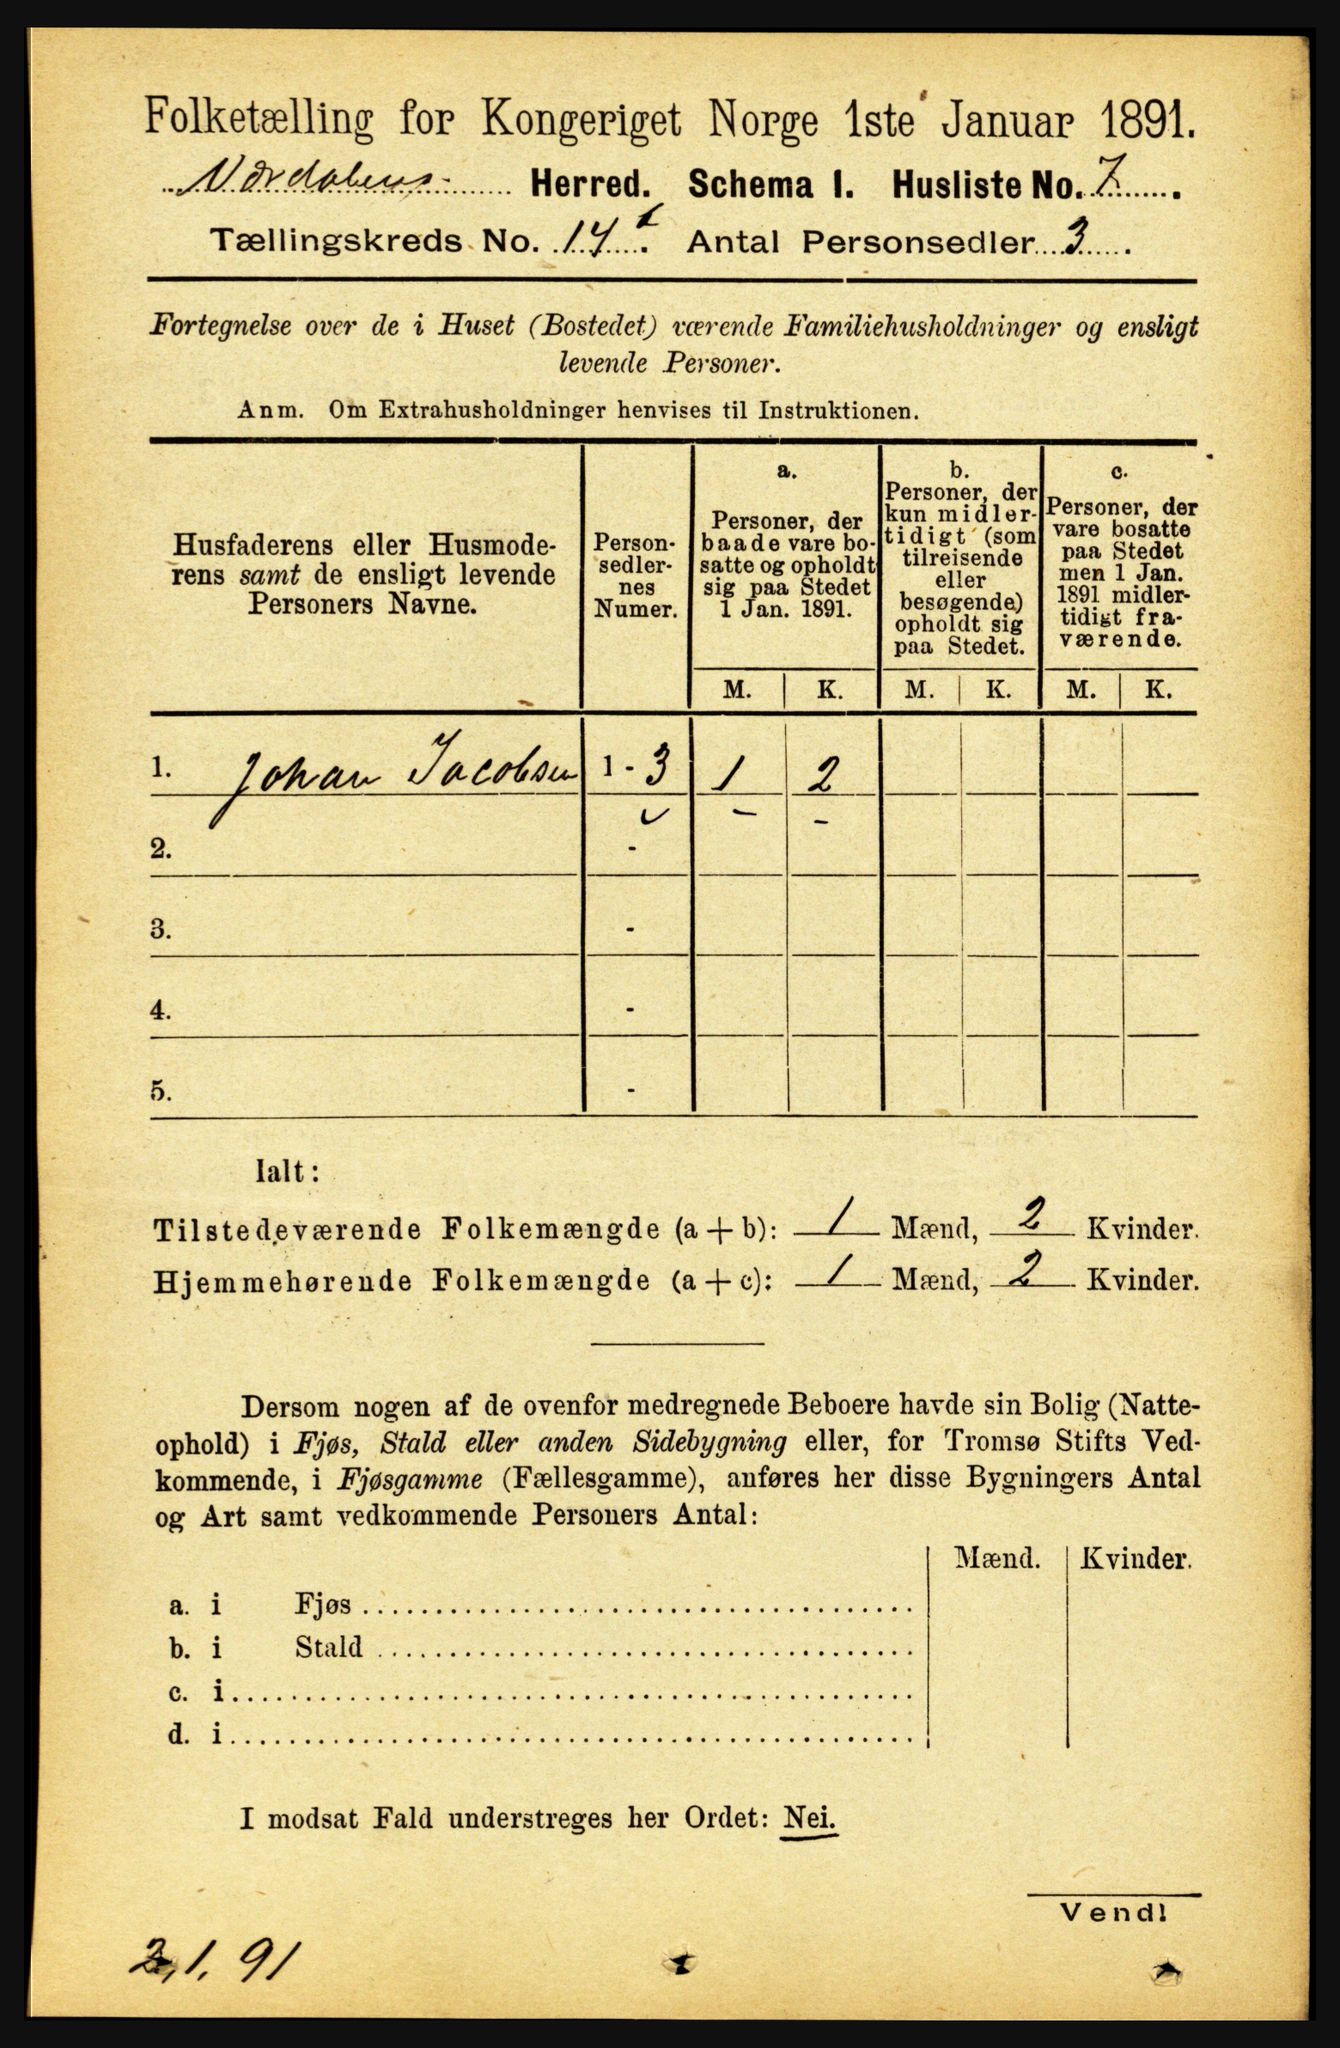 Folketælling for Kongeriget Norge 1ste Januar 1891.
Nordalens Herred. Schema I. Husliste No. 7.
Tællingskreds No. 14. Antal Personsedler 3.
Fortegnelse over de i Huset (Bostedet) værende Familiehusholdninger og ensligt
levende Personer.
Anm. Om Extrahusholdninger henvises til Instruktionen.
Husfaderens eller Husmode-
rens samt de ensligt levende
Personers Navne.
Person-
sedler-
nes
Numer.
a.
Personer, der
baade vare bo-
satte og opholdt
sig paa Stedet
1 Jan. 1891.
b.
Personer, der
kun midler-
tidigt (som
tilreisende
eller
besøgende)
opholdt sig
paa Stedet.
c.
Personer, der
vare bosatte
paa Stedet
men 1 Jan.
1891 midler-
tidigt fra-
værende.
M. K. M. K. M. K.
1. Johan Jacobsen 1 - 3 1 2
2. -
3. -
4. -
5. -
Ialt:
Tilstedeværende Folkemængde (a + b): 1 Mænd, 2 Kvinder.
Hjemmehørende Folkemængde (a + c): 1 Mænd, 2 Kvinder.
Dersom nogen af de ovenfor medregnede Beboere havde sin Bolig (Natte-
ophold) i Fjøs, Stald eller anden Sidebygning eller, for Tromsø Stifts Ved-
kommende, i Fjøsgamme (Fællesgamme), anføres her disse Bygningers Antal
og Art samt vedkommende Personers Antal:
Mænd. Kvinder.
a. i Fjøs
b. i Stald
c. i
d. i
I modsat Fald understreges her Ordet: Nei.
Vend!
2,1. 91